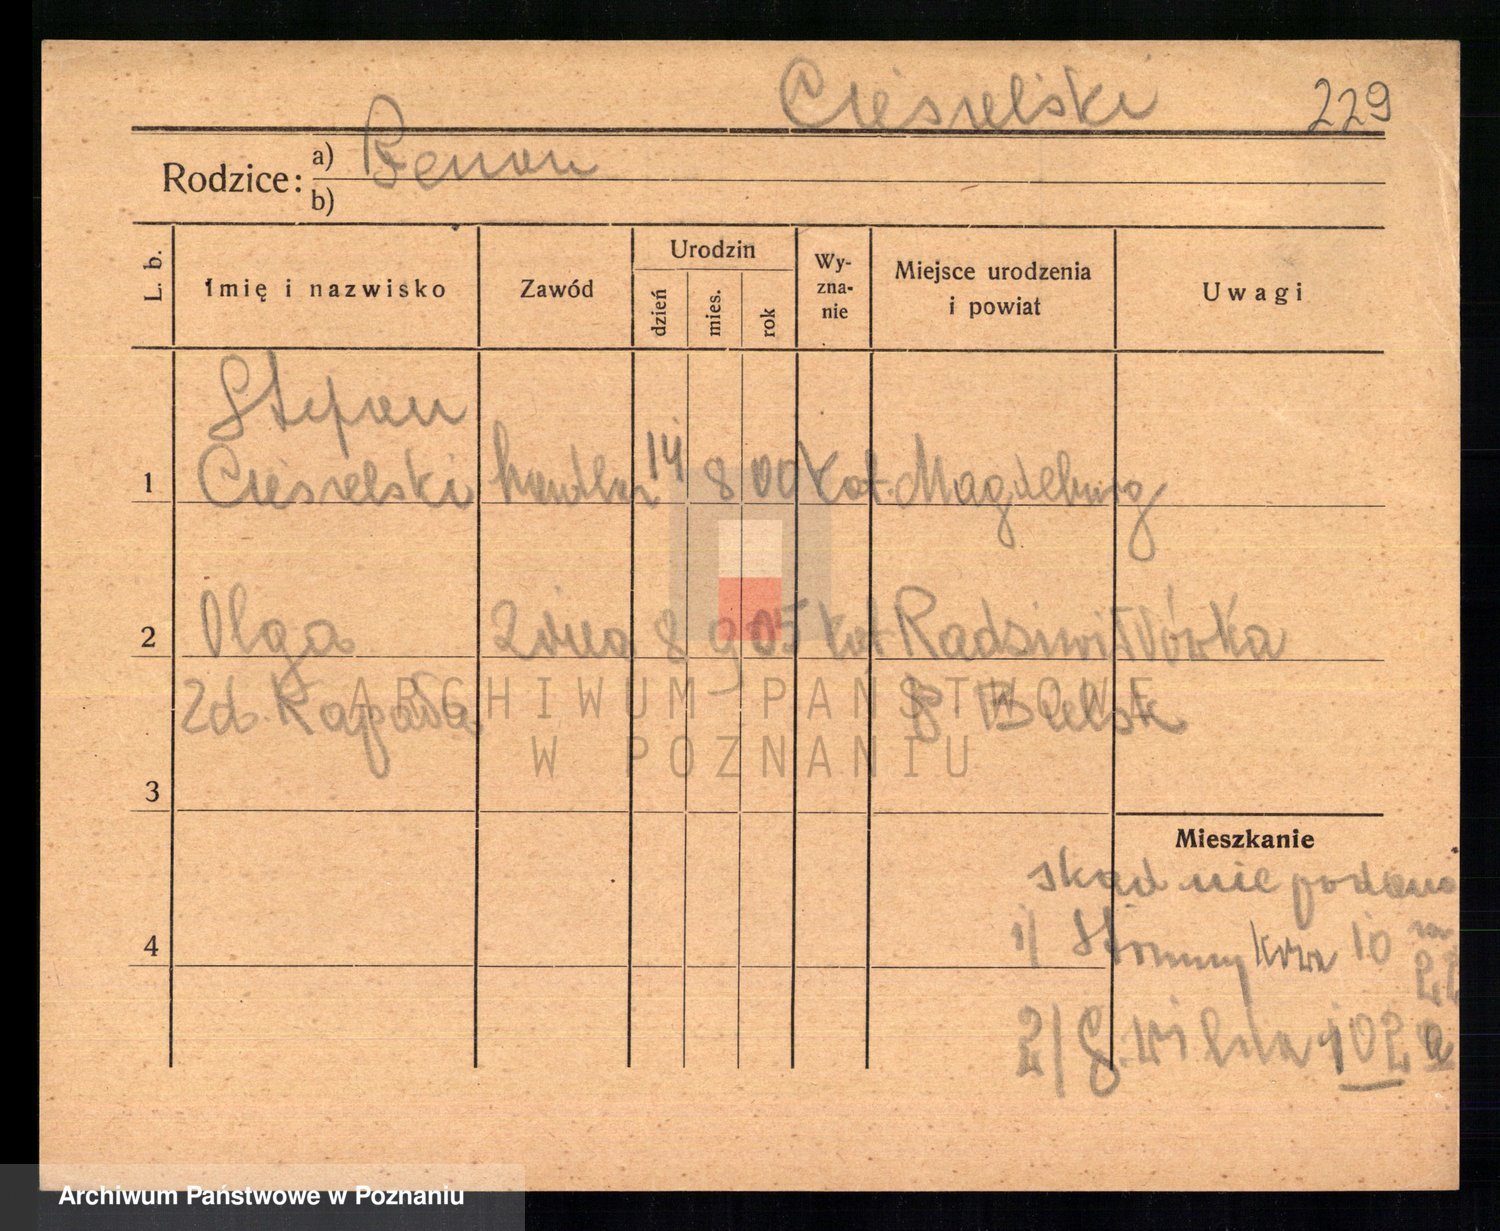 Ciesielski 229
Rodzice: a) Zenon
b)
L. b. Imię i nazwisko Zawód Urodzin dzień mies. rok Wyznanie Miejsce urodzenia i powiat Uwagi
Stefan
1 Ciesielski handlarz 14 8 00 kat. Magdeburg
2 Olga 8 9 05 kat Radziwiłłówka
zd. Kapała p Bielsk
ARCHIWUM PAŃSTWOWE
W POZNANIU
3
Mieszkanie
skąd nie podano
4 1/ 10
2/ G. Wilda 102
Archiwum Państwowe w Poznaniu